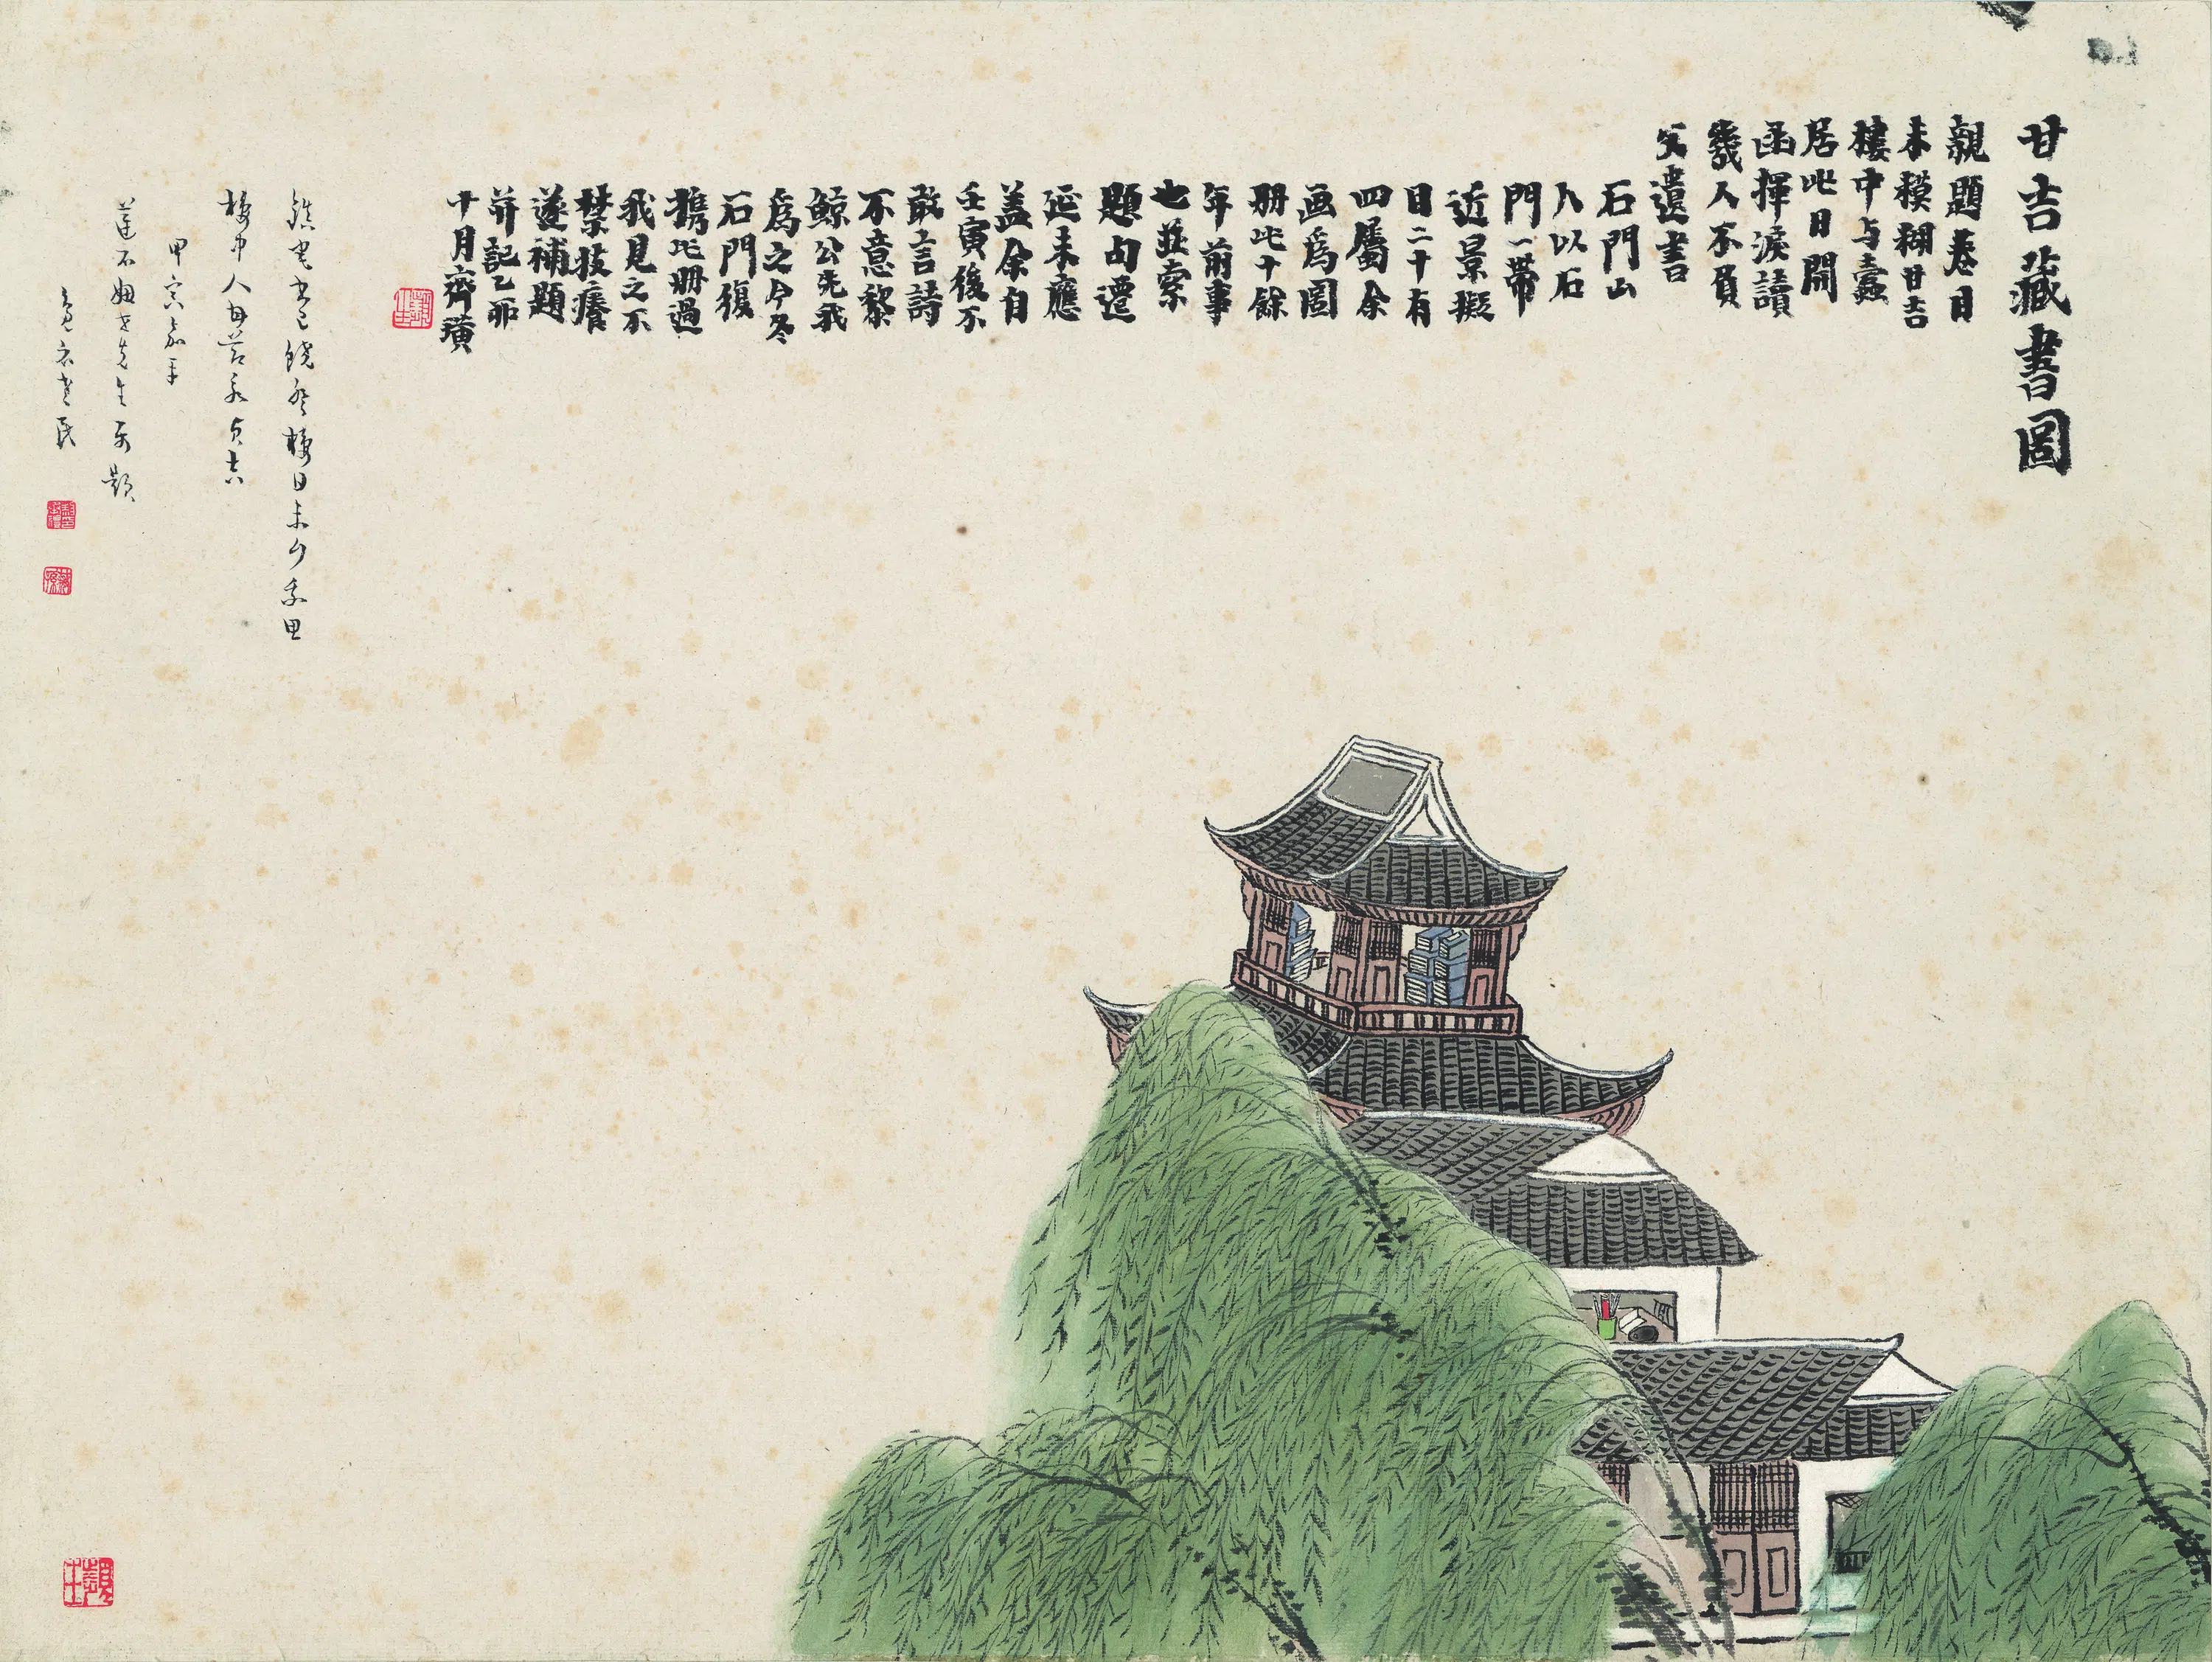 甘吉藏書圖
親題卷目
未模糊甘吉
樓中与蠹
居此日開
函揮淚讀
幾人不負
父遺書
石門山
人以石
門一帶
近景擬
目二十有
四屬余
画爲圖
冊此十餘
年前事
也並索
題句遷
延未應
蓋余自
壬寅後不
敢言詩
不意黎
鯨公先我
爲之今冬
石門復
攜此冊過
我見之不
禁技癢
遂補題
并記乙卯
十月齊璜
樓日未
樓中人
甲寅嘉平
先生
題
老民